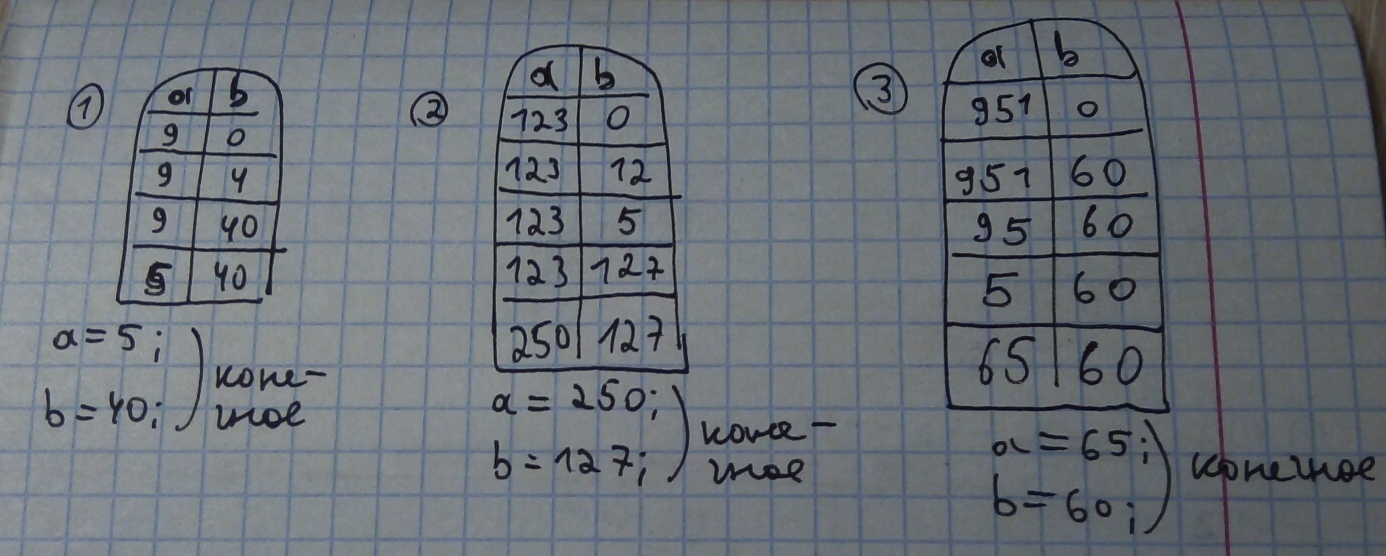 ①
a b
9 0
9 4
9 40
5 40
a = 5;
b = 40;
коне-
чное
②
a b
123 0
123 12
123 5
123 127
250 127
a = 250;
b = 127;
коне-
чное
③
a b
951 0
951 60
95 60
5 60
65 60
a = 65;
b = 60;
конечное